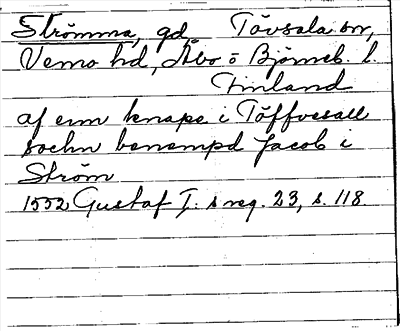 Strömma, gd, Tövsala sn,
Vemo hd, Åbo o Björneb. l.
Finland
af enn knape i Töffvesall
sochn benempd Jacob i
Ström
1552 Gustaf I:s reg. 23, s. 118.